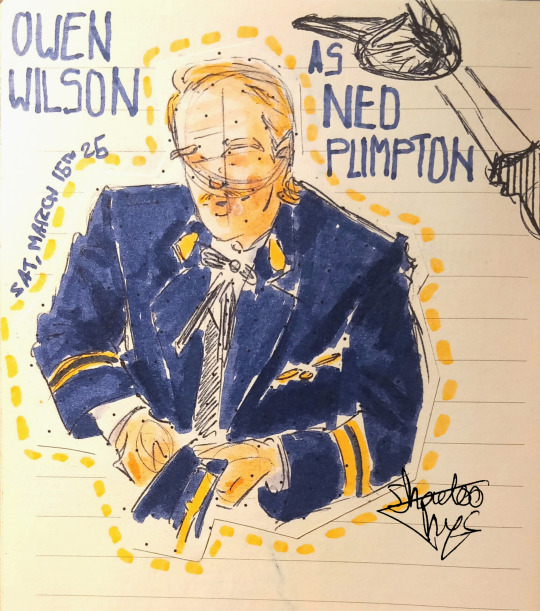 OWEN
WILSON
AS
NED
PLIMPTON
SAT, MARCH 15TH 25